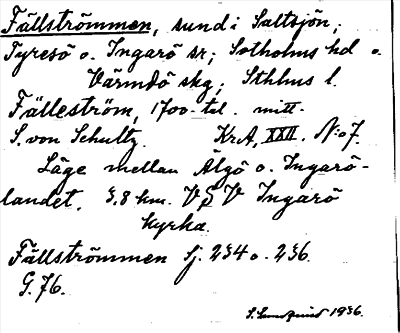 Fällströmmen, sund i Saltsjön;
Tyresö o. Ingarö sr; Sotholms hd o.
Värmdö skg; Sthlms l.
Fälleström, 1700-tal. mitt.
S. von Schultz. KrA, XXII. No 7.
Läge mellan Älgö o. Ingarö-
landet. 3,8 km. VSV Ingarö
kyrka.
Fällströmmen Sj. 234 o. 236.
G. 76.
1936.